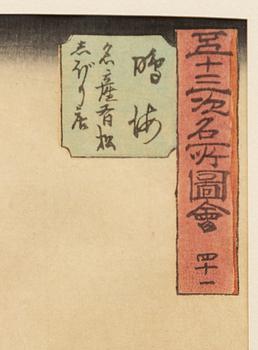 五十三次名所圖會
四十一
鳴海
名産有松
しぼり店